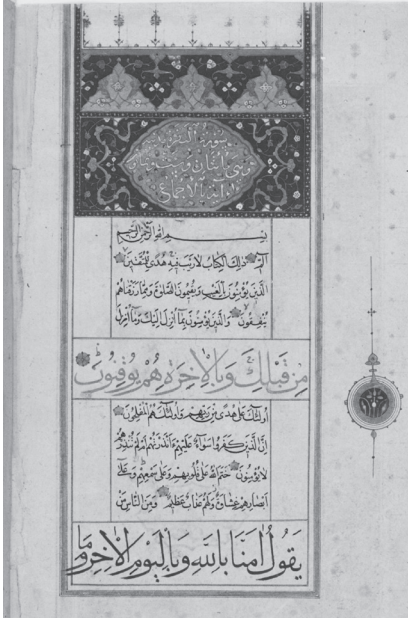 سورة البقرة
بسم الله الرحمن الرحيم
الم ذلك الكتاب لا ريب فيه هدى للمتقين
الذين يؤمنون بالغيب ويقيمون الصلوة ومما رزقناهم
ينفقون والذين يؤمنون بما انزل اليك وما انزل
من قبلك وبالاخرة هم يوقنون
اولئك على هدى من ربهم واولئك هم المفلحون
ان الذين كفروا سواء عليهم ءانذرتهم ام لم تنذرهم
لا يؤمنون ختم الله على قلوبهم وعلى سمعهم وعلى
ابصارهم غشاوة ولهم عذاب عظيم ومن الناس من
يقول امنا بالله وباليوم الاخر وما